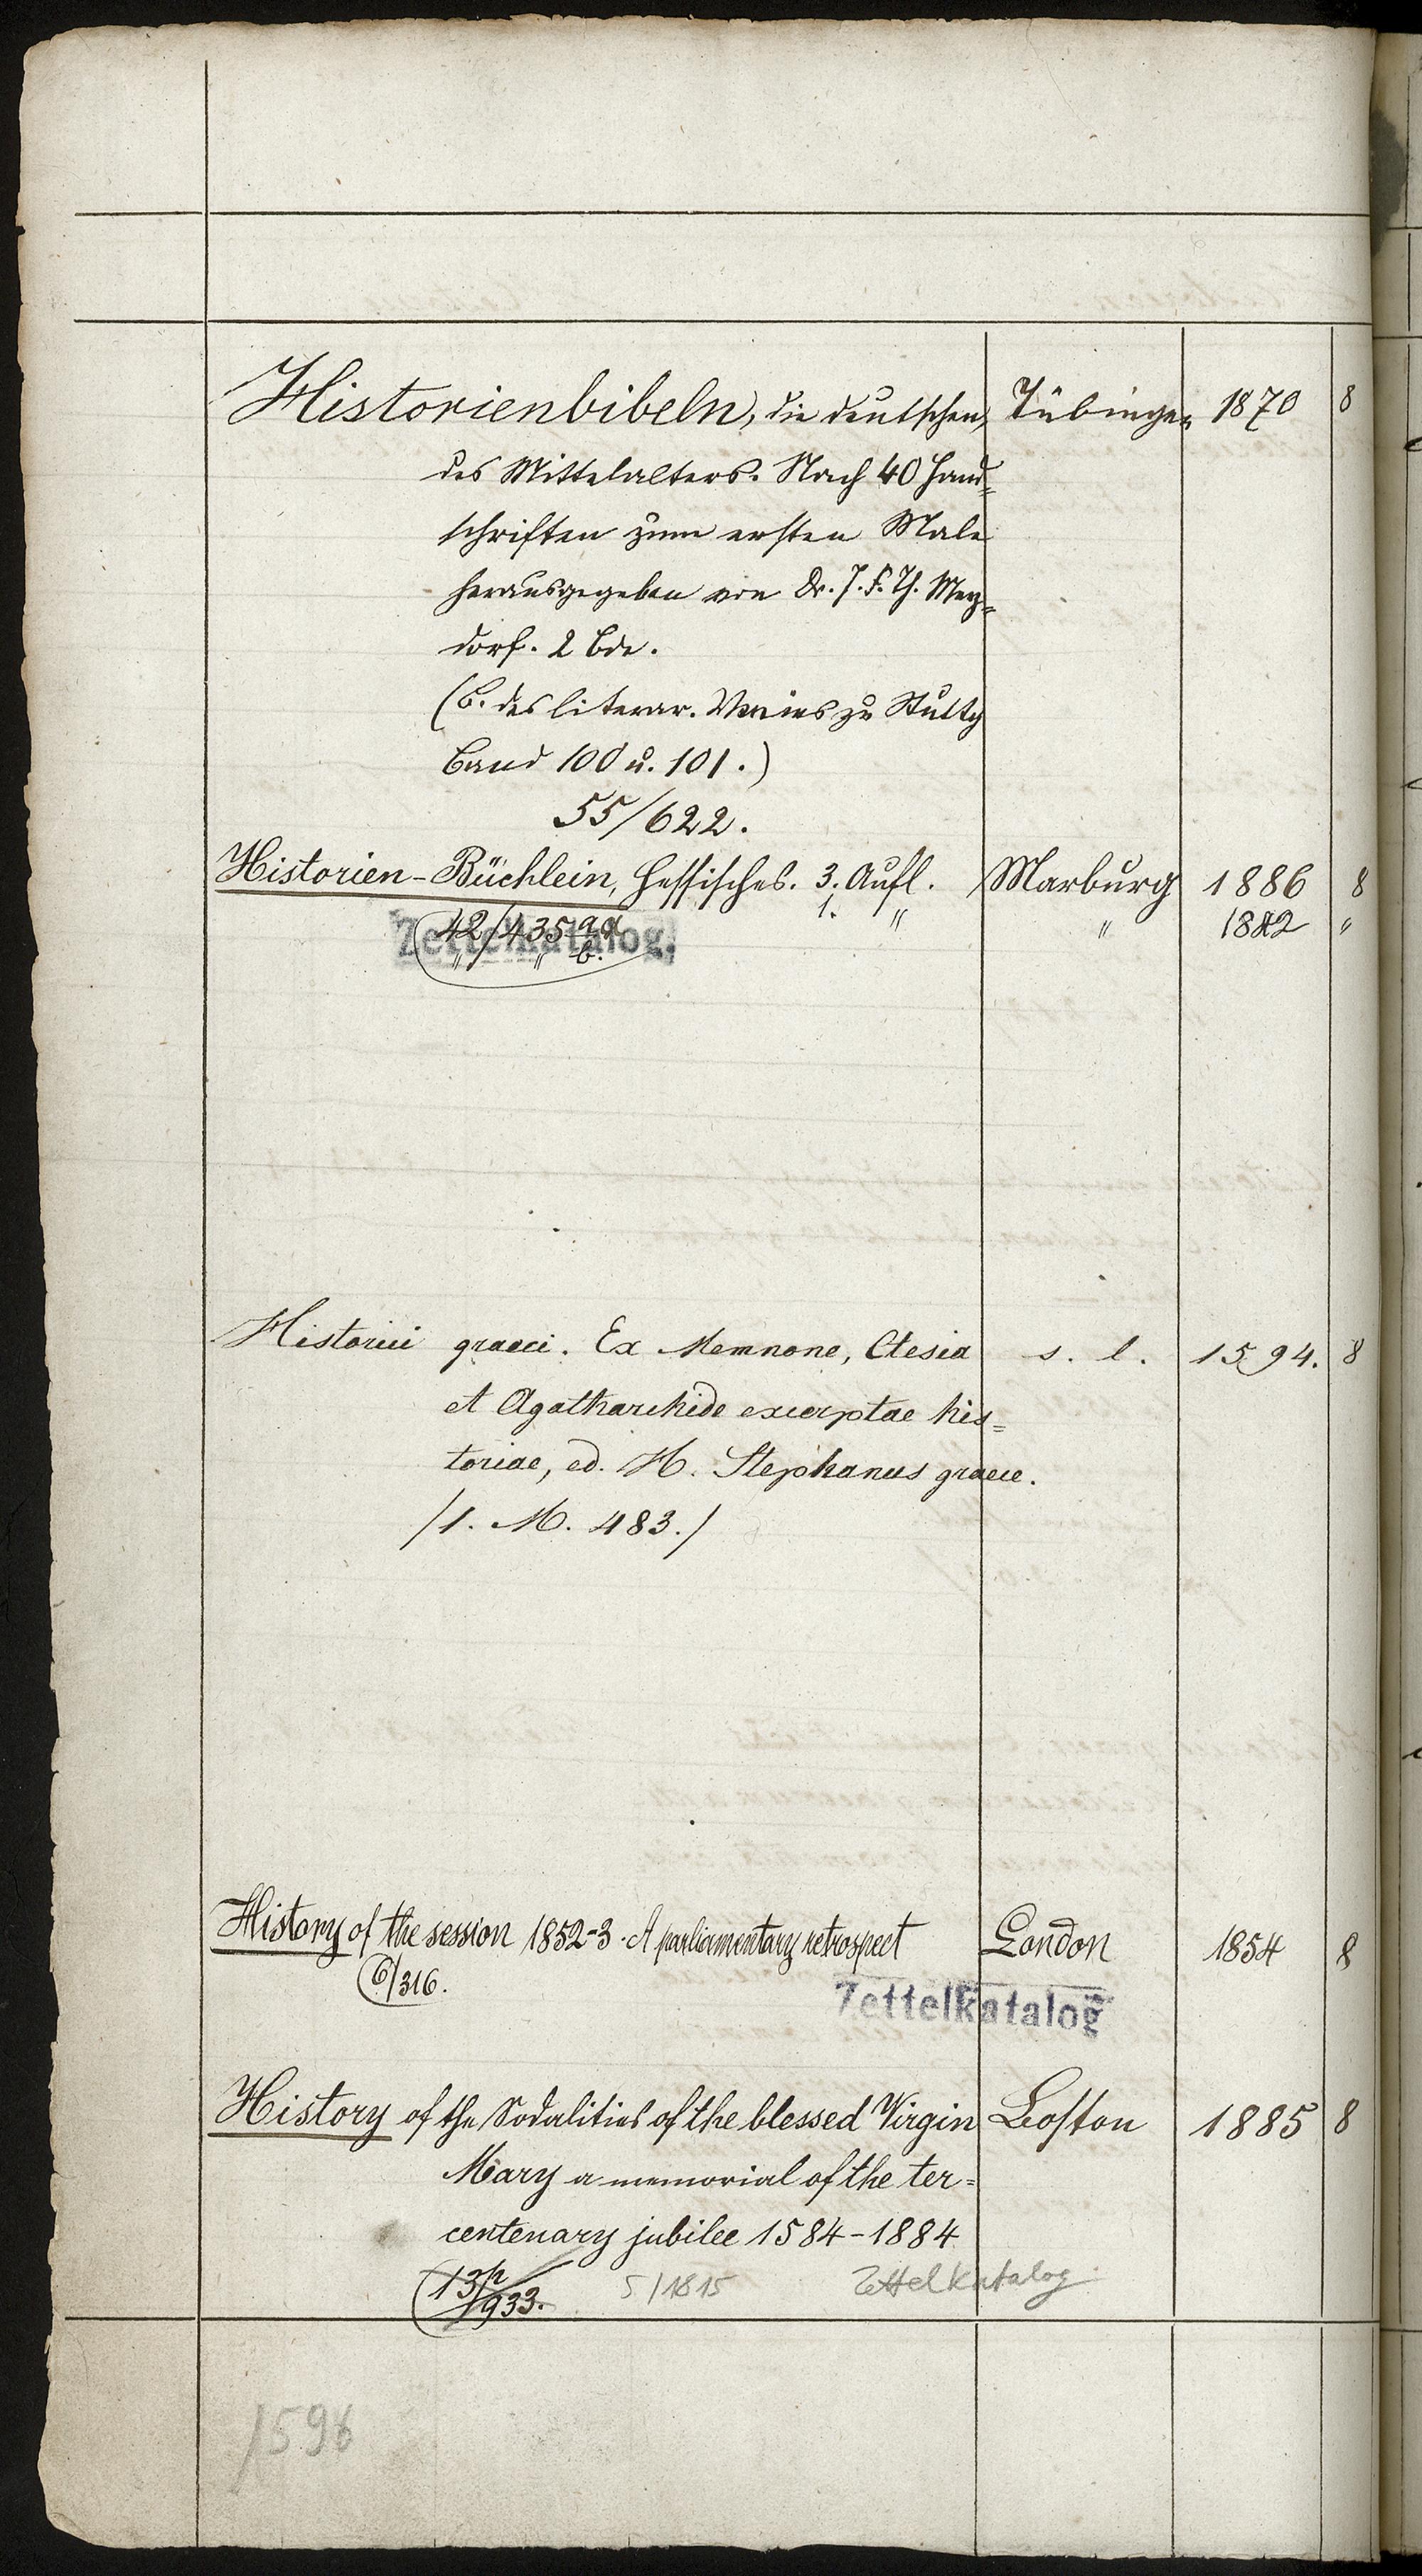 Historienbibeln, die deutschen, Tübingen 1870 8
des Mittelalters. Nach 40 Hand=
schriften zum ersten Male
herausgegeben von Dr. J. F. Th. Merz=
dorf. 2 Bde.
(B. des literar. Vereins zu Stuttg
Band 100 u. 101.)
55/622.
Historien-Büchlein, Hessisches. 3. Aufl. Marburg 1886 8
1. " " 1882 "
42/435 a
Zettelkatalog.
" " b.
Historici graeci. Ex Memnone, Ctesia s. l. 1594. 8
et Agatharchide excerptae his=
toriae, ed. H. Stephanus graece.
/1. M. 483./
History of the session 1852-3. A parliamentary retrospect London 1854 8
6/316.
Zettelkatalog
History of the Sodalities of the blessed Virgin Boston 1885 8
Mary a memorial of the ter=
centenary jubilee 1584-1884
13h/933. 5/1815 Zettelkatalog
1596